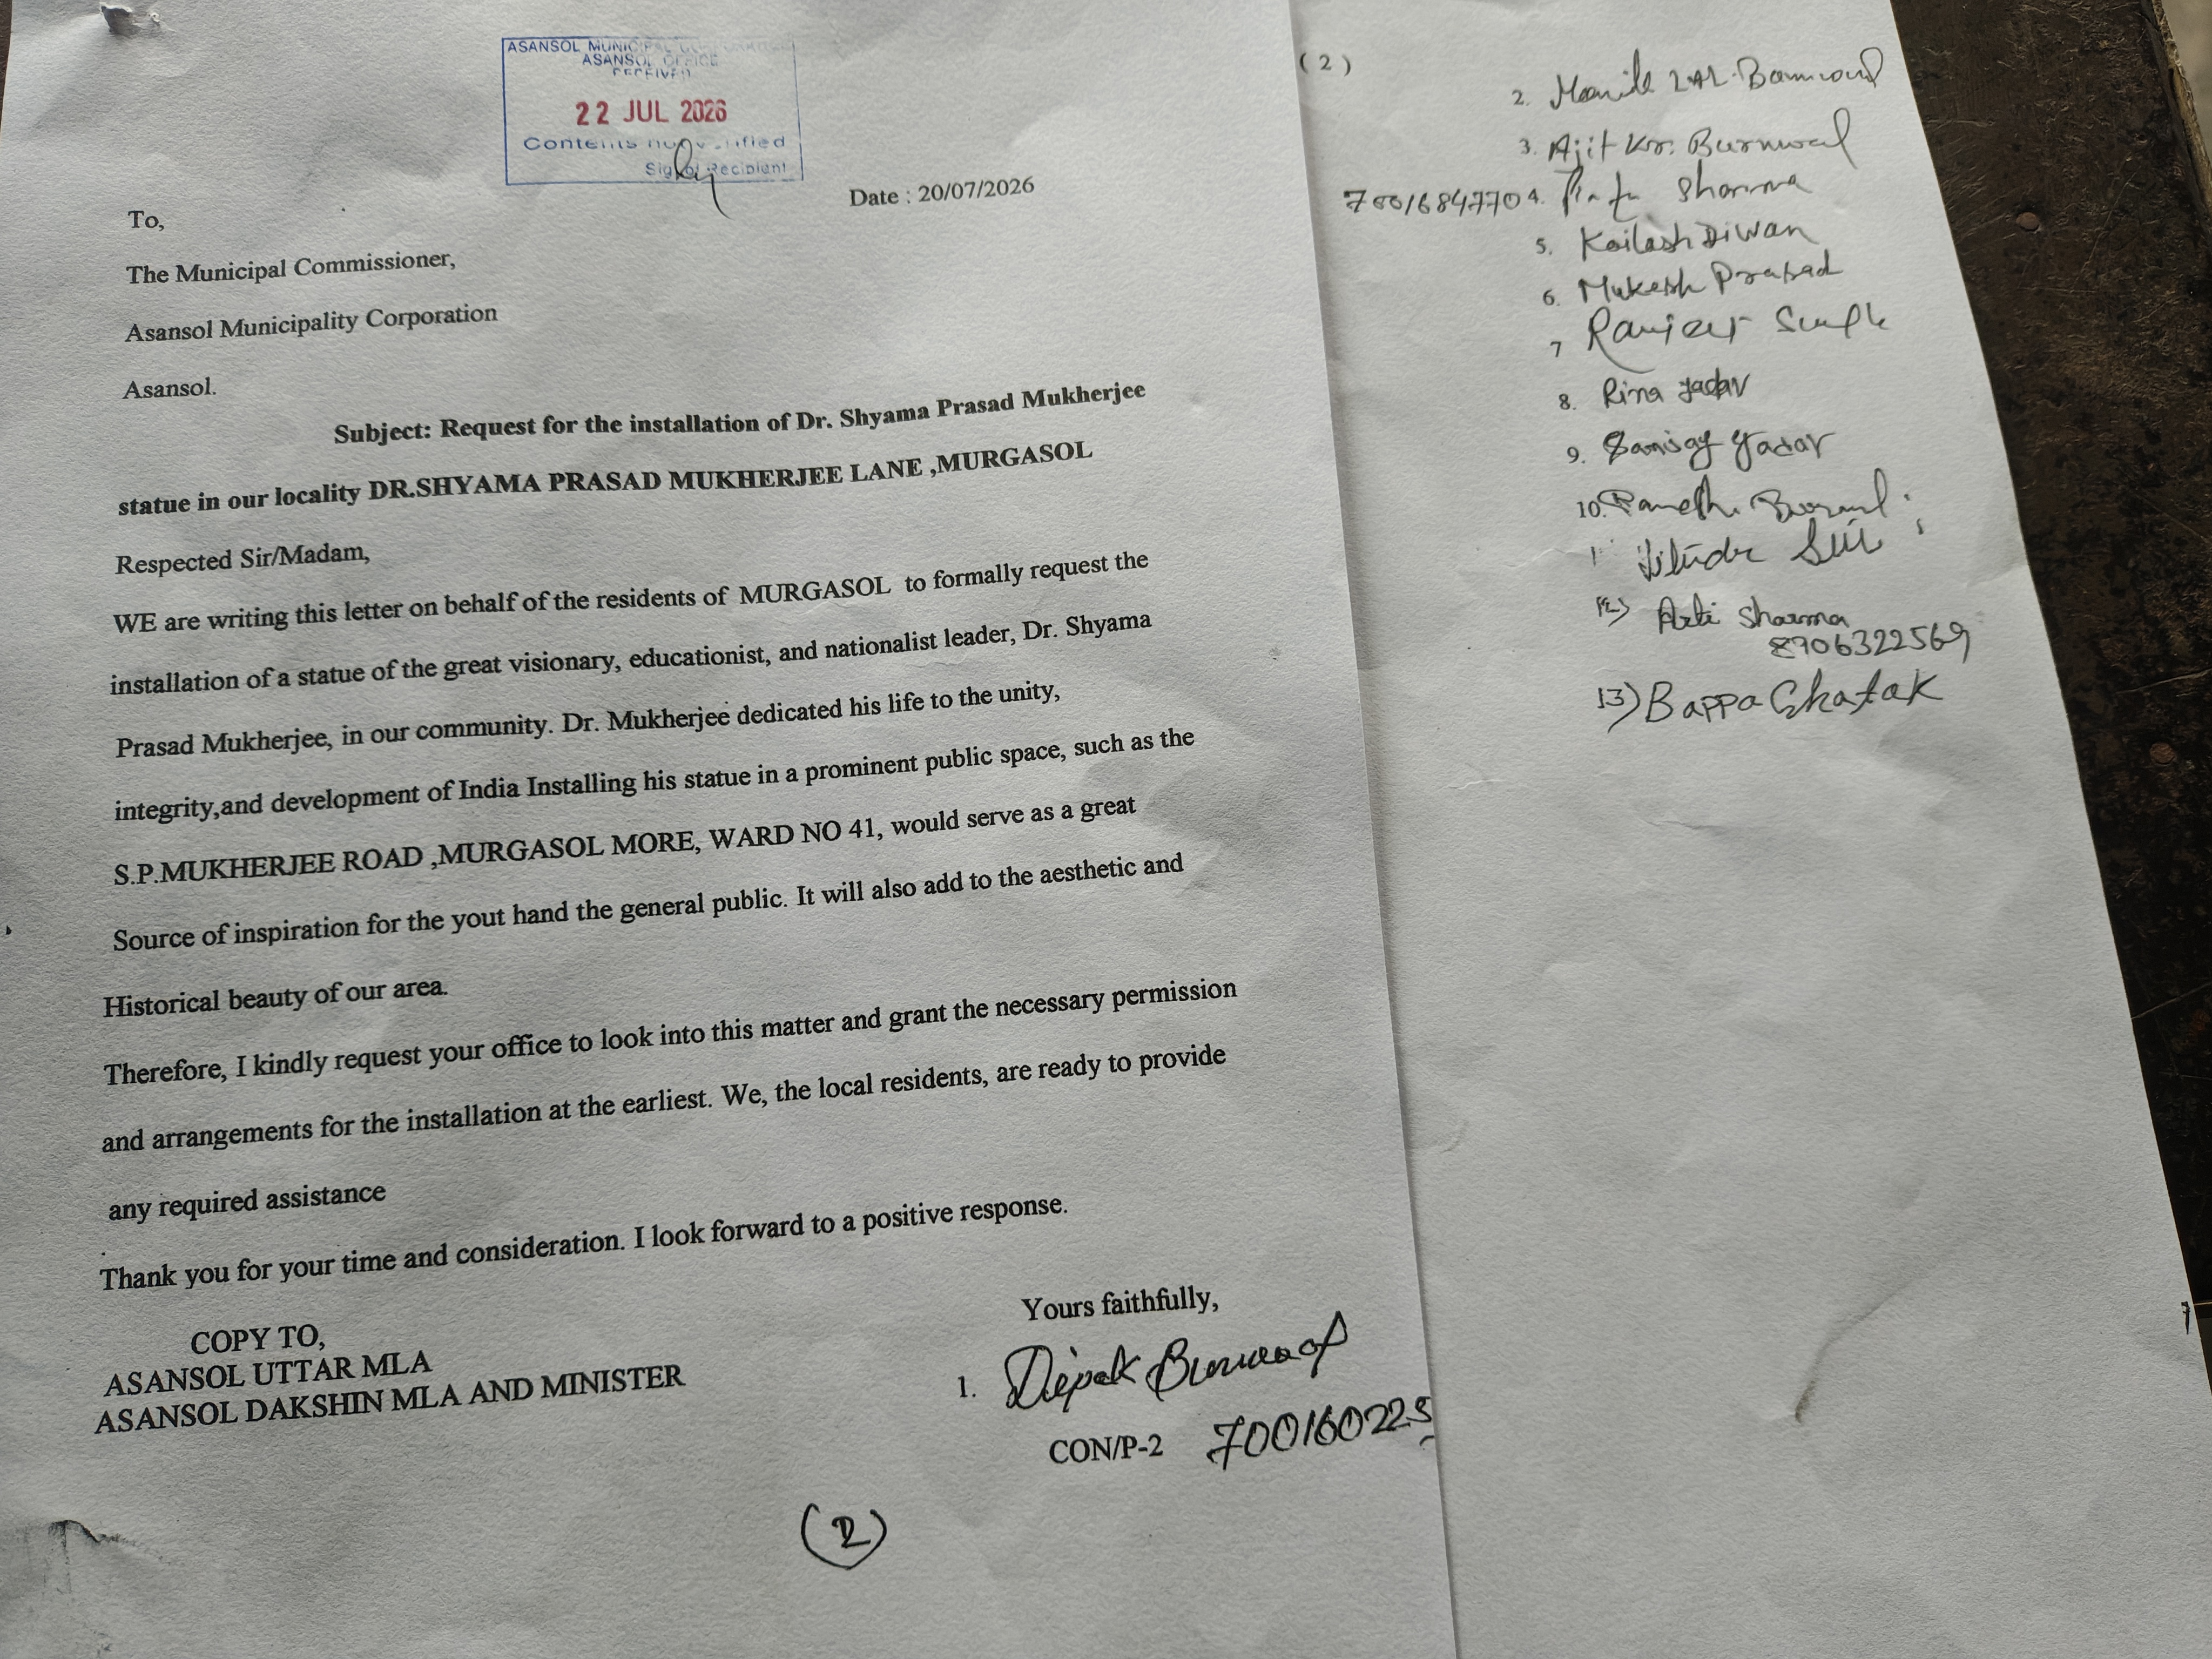 ASANSOL MUNICIPAL
ASANSOL OFFICE
RECEIVED
22 JUL 2026
Contents not verified
Sig of Recipient
Date : 20/07/2026
To,
The Municipal Commissioner,
Asansol Municipality Corporation
Asansol.
Subject: Request for the installation of Dr. Shyama Prasad Mukherjee
statue in our locality DR.SHYAMA PRASAD MUKHERJEE LANE ,MURGASOL
Respected Sir/Madam,
WE are writing this letter on behalf of the residents of MURGASOL to formally request the
installation of a statue of the great visionary, educationist, and nationalist leader, Dr. Shyama
Prasad Mukherjee, in our community. Dr. Mukherjee dedicated his life to the unity,
integrity,and development of India Installing his statue in a prominent public space, such as the
S.P.MUKHERJEE ROAD ,MURGASOL MORE, WARD NO 41, would serve as a great
Source of inspiration for the yout hand the general public. It will also add to the aesthetic and
Historical beauty of our area.
Therefore, I kindly request your office to look into this matter and grant the necessary permission
and arrangements for the installation at the earliest. We, the local residents, are ready to provide
any required assistance
Thank you for your time and consideration. I look forward to a positive response.
COPY TO,
ASANSOL UTTAR MLA
ASANSOL DAKSHIN MLA AND MINISTER
Yours faithfully,
1. Dipak Burnwal
CON/P-2 700160225
(2)
(2)
2. LAL
3. Ajit Kr. Burnwal
7001684770 4. Sharma
5. Kailash Diwan
6. Mukesh Prasad
7 Ranjeet Singh
8. Rina Yadav
9. Sanjay Yadav
10.
12) Arti Sharma
8906322569
13) Bappa Ghatak